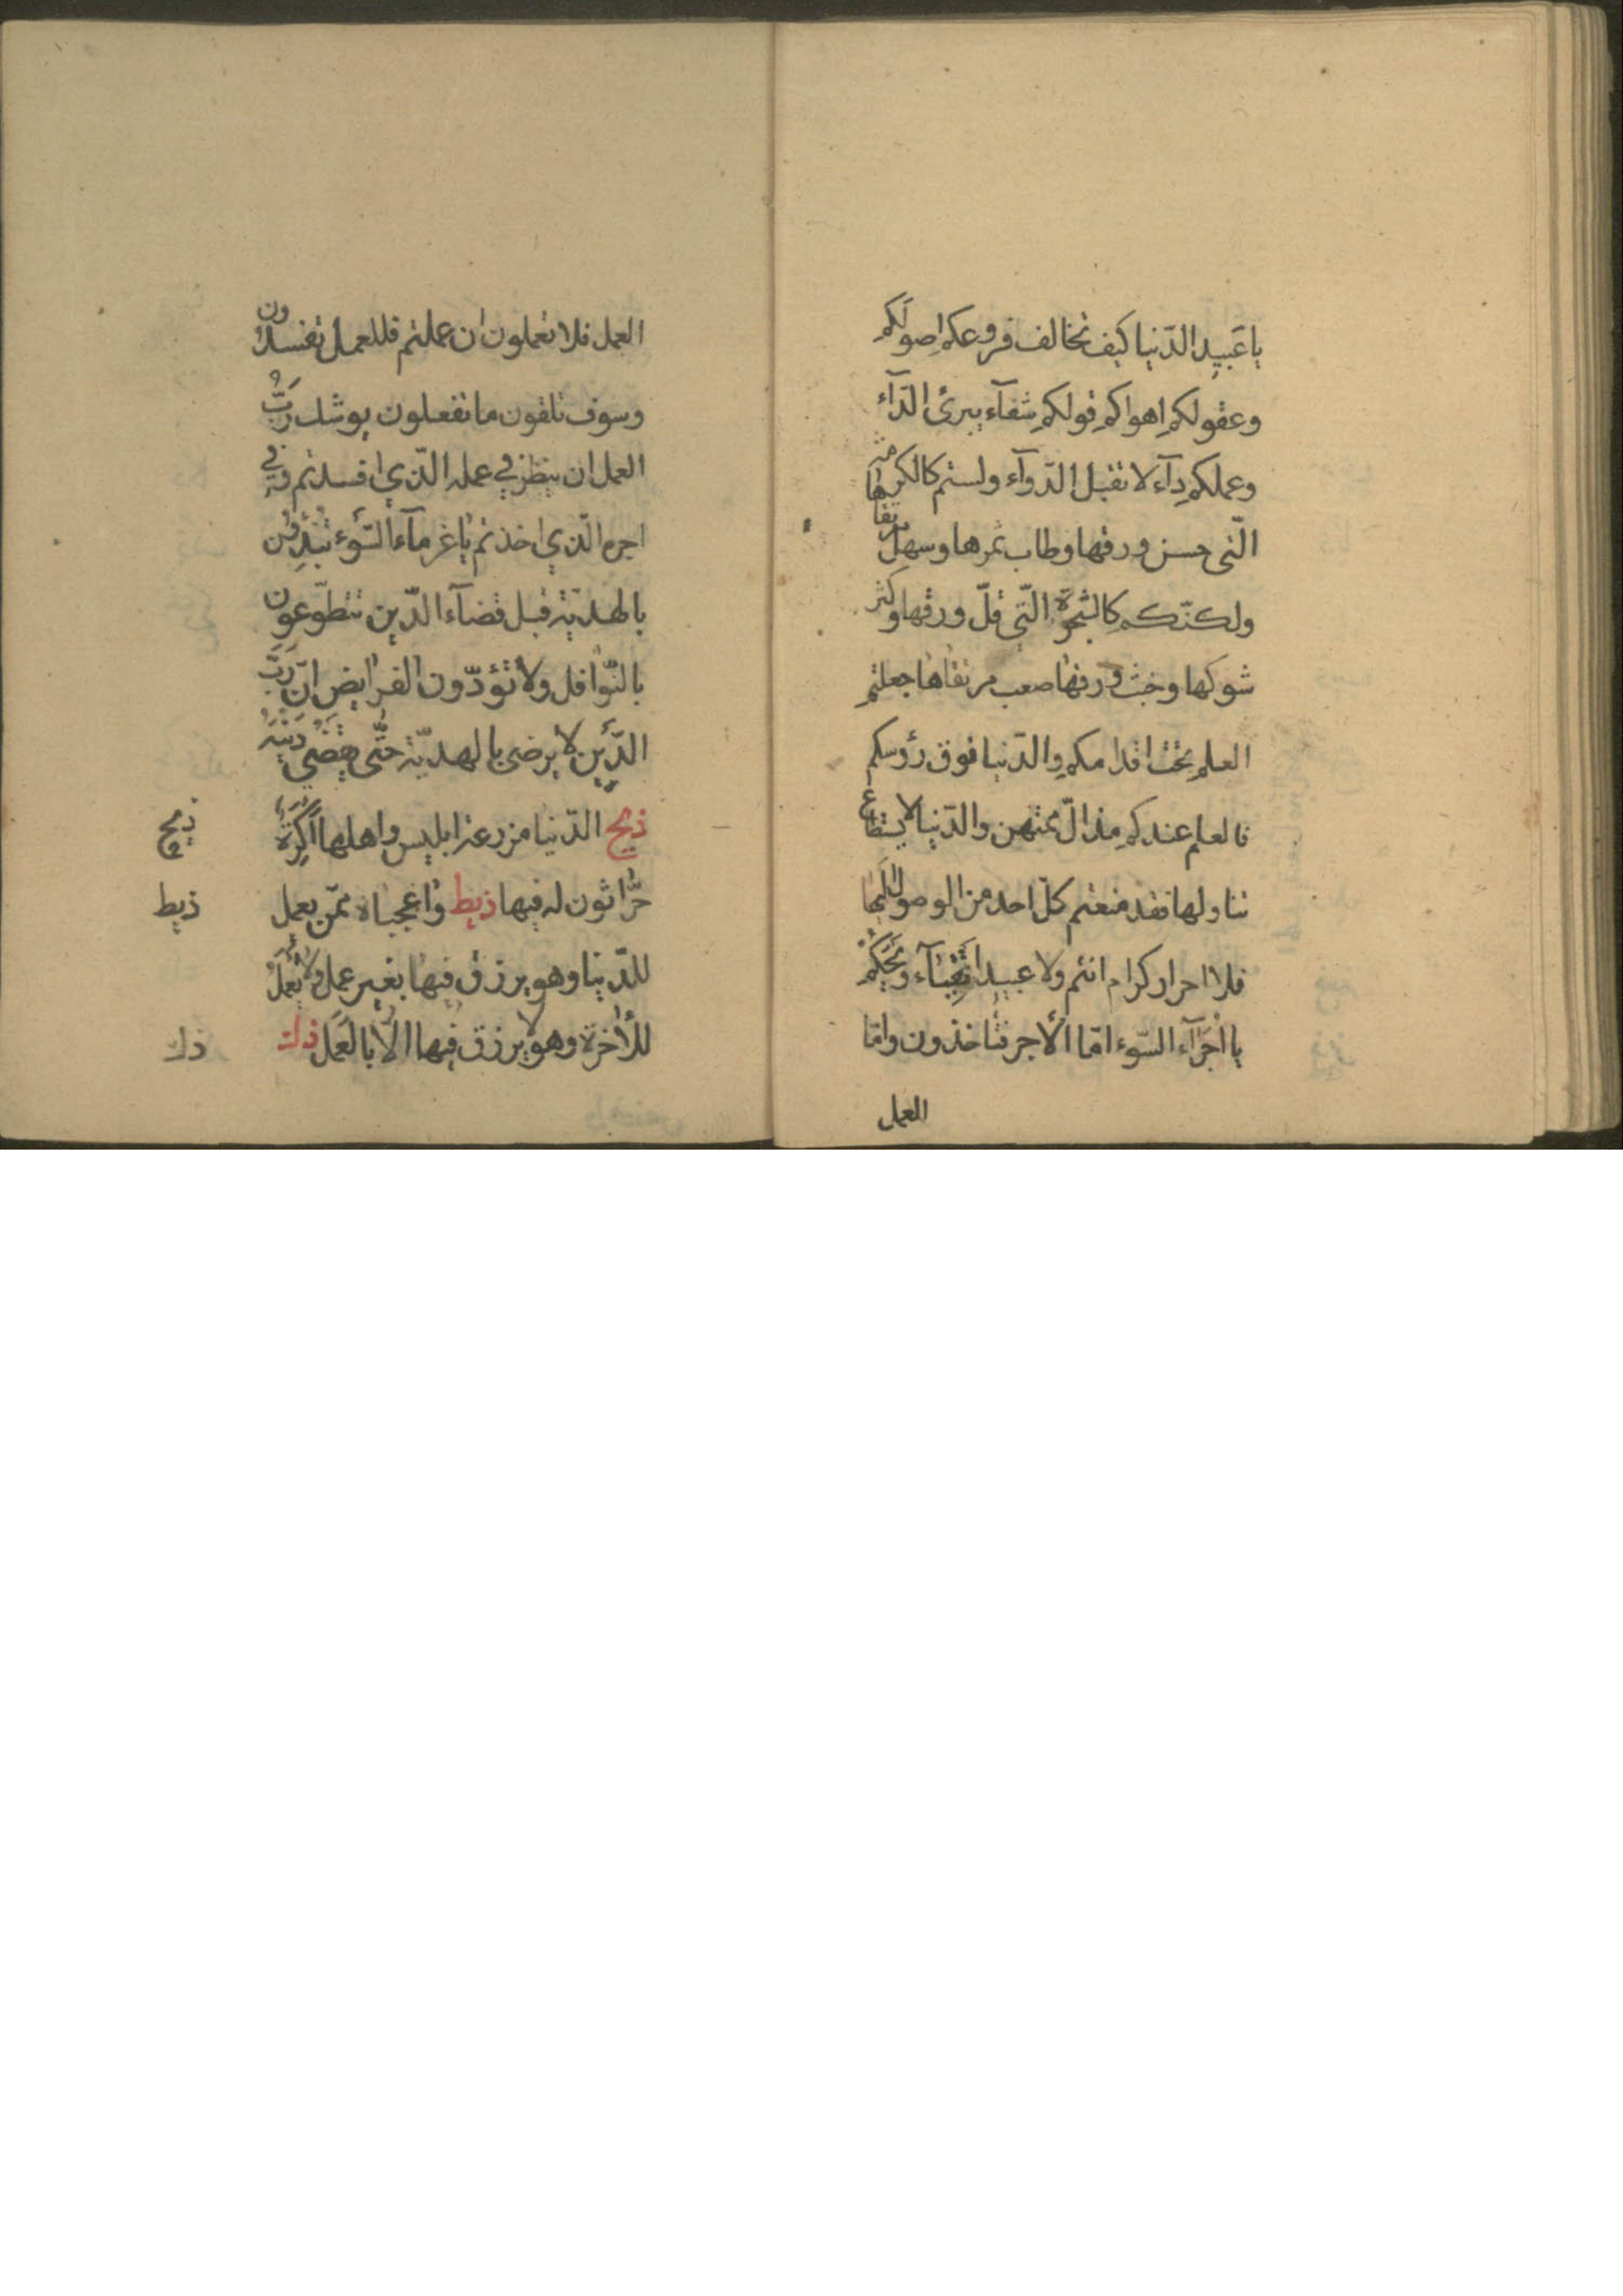 يا عَبيد الدّنيا كيف تخالف فروعكم اصولكم
وعقولكم اهواكم قولكم شفآء يبرئ الدّآء
وعملكم دآء لا تقبل الدّوآء ولستم كالكرمة
الّتى حسن ورقها وطاب ثمرها وسهل مرتقاها
ولكنّكم كالشجرة الّتي قلّ ورقها وكثر
شوكها وخبث ورقها صعب مرتقاها جعلتم
العلم تحت اقدامكم والدّنيا فوق رؤسكم
فالعلم عندكم مذالّ ممتهن والدّنيا لا يستطاع
تناولها فقد منعتم كلّ احد من الوصول اليها
فلا احرار كرام انتم ولا عبيد اتقيآء ويحكم
يا اُجَرَآء السّوء امّا الأجر فتأخذون وامّا
العمل
العمل فلا تعملون ان عملتم فللعمل تفسدون
وسوف تلقون ما تفعلون يوشك رَبُّ
العمل ان ينظر في عمله الّذي افسدتم وفي
اجره الّذي اخذتم يا غرمآء السّوء تبدؤن
بالهديّة قبل قضآء الدّين تتطوّعون
بالنّوافل ولا تؤدّون الفرايض انّ رَبَّ
الدَّين لا يرضى بالهديّة حتّى يقضى دَيْنه
ذيح الدّنيا مزرعة ابليس واهلها اَكَرَةٌ
حرّاثون له فيها ذيط واعجباه ممّن يعمل
للدّنيا وهو يرزق فيها بغير عمل ولا يعمل
للأخرة وهو لا يرزق فيها الّا بالعَمَل ذك
ذيح
ذيط
ذك